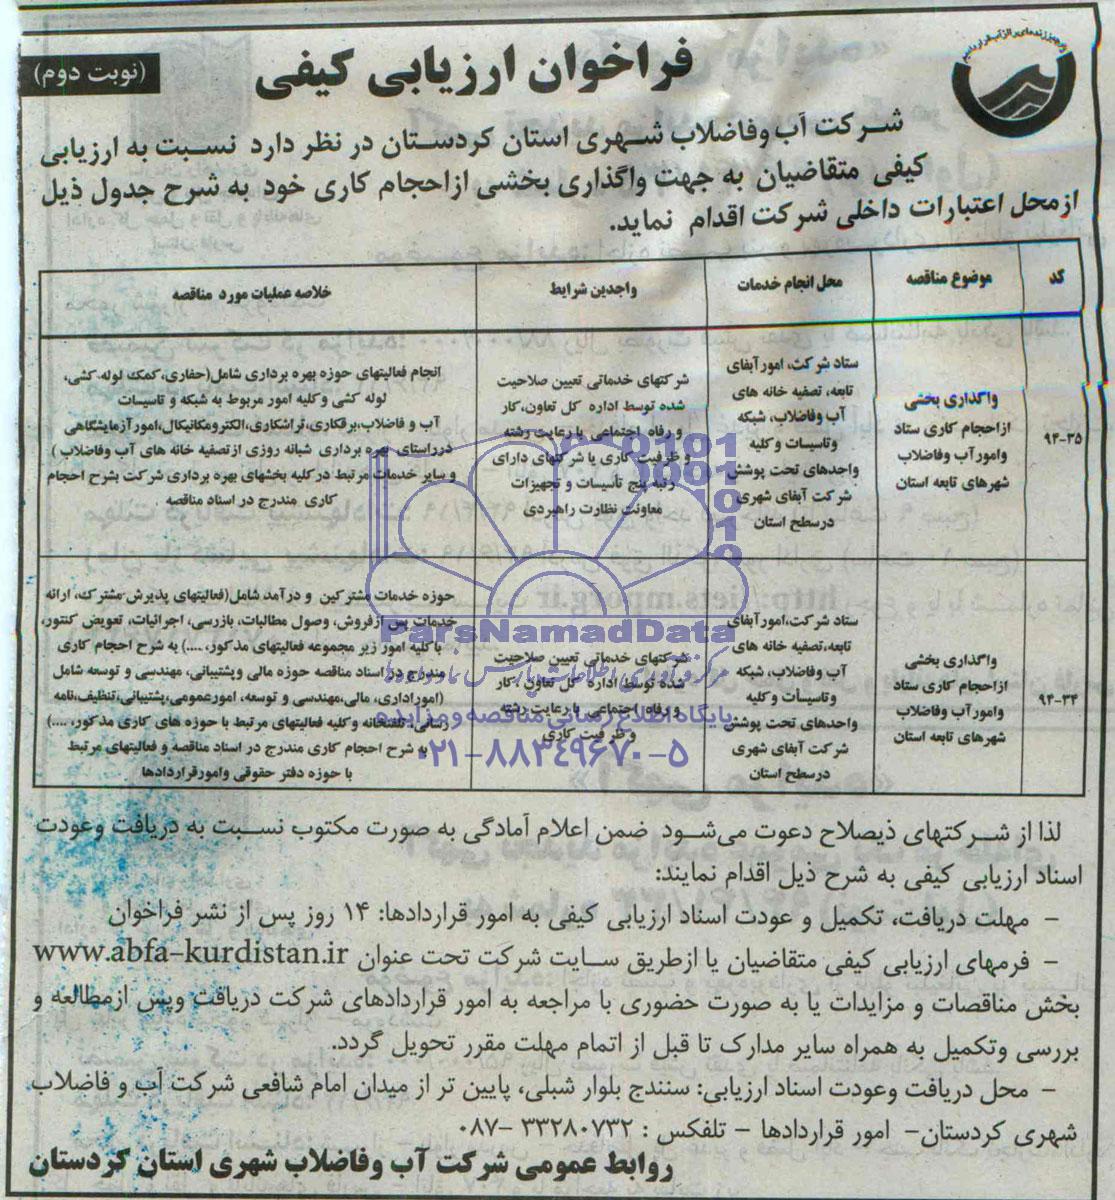 فراخوان ارزیابی کیفی
(نوبت دوم)
شرکت آب وفاضلاب شهری استان کردستان در نظر دارد نسبت به ارزیابی
کیفی متقاضیان به جهت واگذاری بخشی ازاحجام کاری خود به شرح جدول ذیل
ازمحل اعتبارات داخلی شرکت اقدام نماید.
کد
موضوع مناقصه
محل انجام خدمات
واجدین شرایط
خلاصه عملیات مورد مناقصه
۹۴-۳۵
واگذاری بخشی
ازاحجام کاری ستاد
وامورآب وفاضلاب
شهرهای تابعه استان
ستاد شرکت، امورآبفای
تابعه، تصفیه خانه های
آب وفاضلاب، شبکه
وتاسیسات و کلیه
واحدهای تحت پوشش
شرکت آبفای شهری
درسطح استان
شرکتهای خدماتی تعیین صلاحیت
شده توسط اداره کل تعاون،کار
و رفاه اجتماعی با رعایت رشته
و ظرفیت کاری یا شرکتهای دارای
رتبه پنج تأسیسات و تجهیزات
معاونت نظارت راهبردی
انجام فعالیتهای حوزه بهره برداری شامل(حفاری،کمک لوله کشی،
لوله کشی وکلیه امور مربوط به شبکه و تاسیسات
آب و فاضلاب،برقکاری،تراشکاری،الکترومکانیکال،امورآزمایشگاهی
درراستای بهره برداری شبانه روزی ازتصفیه خانه های آب وفاضلاب )
و سایر خدمات مرتبط در کلیه بخشهای بهره برداری شرکت بشرح احجام
کاری مندرج در اسناد مناقصه
۹۴-۳۴
واگذاری بخشی
ازاحجام کاری ستاد
وامورآب وفاضلاب
شهرهای تابعه استان
ستاد شرکت،امورآبفای
تابعه،تصفیه خانه های
آب وفاضلاب، شبکه
وتاسیسات و کلیه
واحدهای تحت پوشش
شرکت آبفای شهری
درسطح استان
شرکتهای خدماتی تعیین صلاحیت
شده توسط اداره کل تعاون ،کار
و رفاه اجتماعی با رعایت رشته
و ظرفیت کاری
حوزه خدمات مشترکین و درآمد شامل(فعالیتهای پذیرش مشترک، ارائه
خدمات پس ازفروش، وصول مطالبات، بازرسی، اجرائیات، تعویض کنتور،
با کلیه امور زیر مجموعه فعالیتهای مذکور، ....) به شرح احجام کاری
مندرج در اسناد مناقصه حوزه مالی وپشتیبانی، مهندسی و توسعه شامل
(اموراداری، مالی،مهندسی و توسعه، امورعمومی،پشتیبانی،تنظیف،نامه
رسانی، تلفنخانه و کلیه فعالیتهای مرتبط با حوزه های کاری مذکور، ....)
به شرح احجام کاری مندرج در اسناد مناقصه و فعالیتهای مرتبط
با حوزه دفتر حقوقی وامورقراردادها
ParsNamadData
مرکز فرآوری اطلاعات پارس نماد داده ها
پایگاه اطلاع رسانی مناقصه و مزایده
۰۲۱-۸۸۳۴۹۶۷۰-۵
لذا از شرکتهای ذیصلاح دعوت می‌شود ضمن اعلام آمادگی به صورت مکتوب نسبت به دریافت وعودت
اسناد ارزیابی کیفی به شرح ذیل اقدام نمایند:
- مهلت دریافت، تکمیل و عودت اسناد ارزیابی کیفی به امور قراردادها: ۱۴ روز پس از نشر فراخوان
- فرمهای ارزیابی کیفی متقاضیان یا ازطریق سایت شرکت تحت عنوان www.abfa-kurdistan.ir
بخش مناقصات و مزایدات یا به صورت حضوری با مراجعه به امور قراردادهای شرکت دریافت وپس ازمطالعه و
بررسی وتکمیل به همراه سایر مدارک تا قبل از اتمام مهلت مقرر تحویل گردد.
- محل دریافت وعودت اسناد ارزیابی: سنندج بلوار شبلی، پایین تر از میدان امام شافعی شرکت آب و فاضلاب
شهری کردستان- امور قراردادها - تلفکس : ۳۳۲۸۰۷۳۲ -۰۸۷
روابط عمومی شرکت آب وفاضلاب شهری استان کردستان